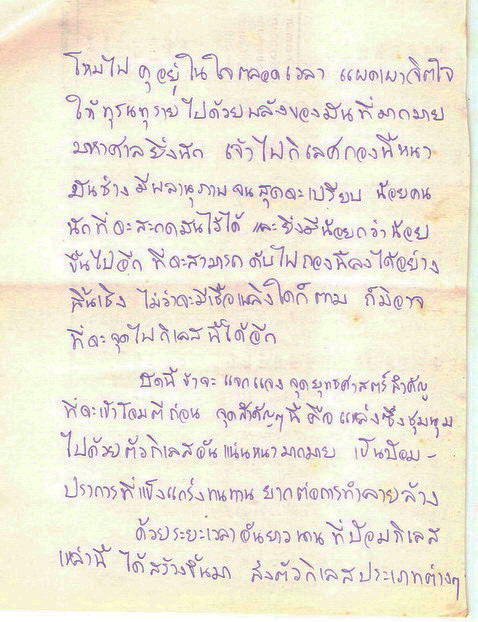 โหมไฟ คุอยู่ในใจตลอดเวลา แผดเผาจิตใจ
ให้ทุรนทุรายไปด้วยพลังของมันที่มากมาย
มหาศาลยิ่งนัก เจ้าไฟกิเลศกองนี้หนา
มันช่างมีพลานุภาพจนสุดจะเปรียบ น้อยคน
นักที่จะสะกดมันไว้ได้ และยิ่งมีน้อยกว่าน้อย
ขึ้นไปอีก ที่จะสามารถดับไฟกองนี้ลงได้อย่าง
สิ้นเชิง ไม่ว่าจะมีเชื้อเพลิงใดก็ตาม ก็มิอาจ
ที่จะจุดไฟกิเลสนี้ได้อีก
บัดนี้ข้าจะแจกแจงจุดยุทธศาสตร์สำคัญ
ที่จะเข้าโจมตีก่อน จุดสำคัญๆนี้คือแหล่งซึ่งชุมนุม
ไปด้วยตัวกิเลสอันแน่นหนามากมาย เป็นป้อม-
ปราการที่แข็งแกร่งทนทาน ยากต่อการทำลายล้าง
ด้วยระยะเวลาอันยาวนานที่ป้อมกิเลส
เหล่านี้ ได้สร้างขึ้นมา ส่งตัวกิเลสประเภทต่างๆ